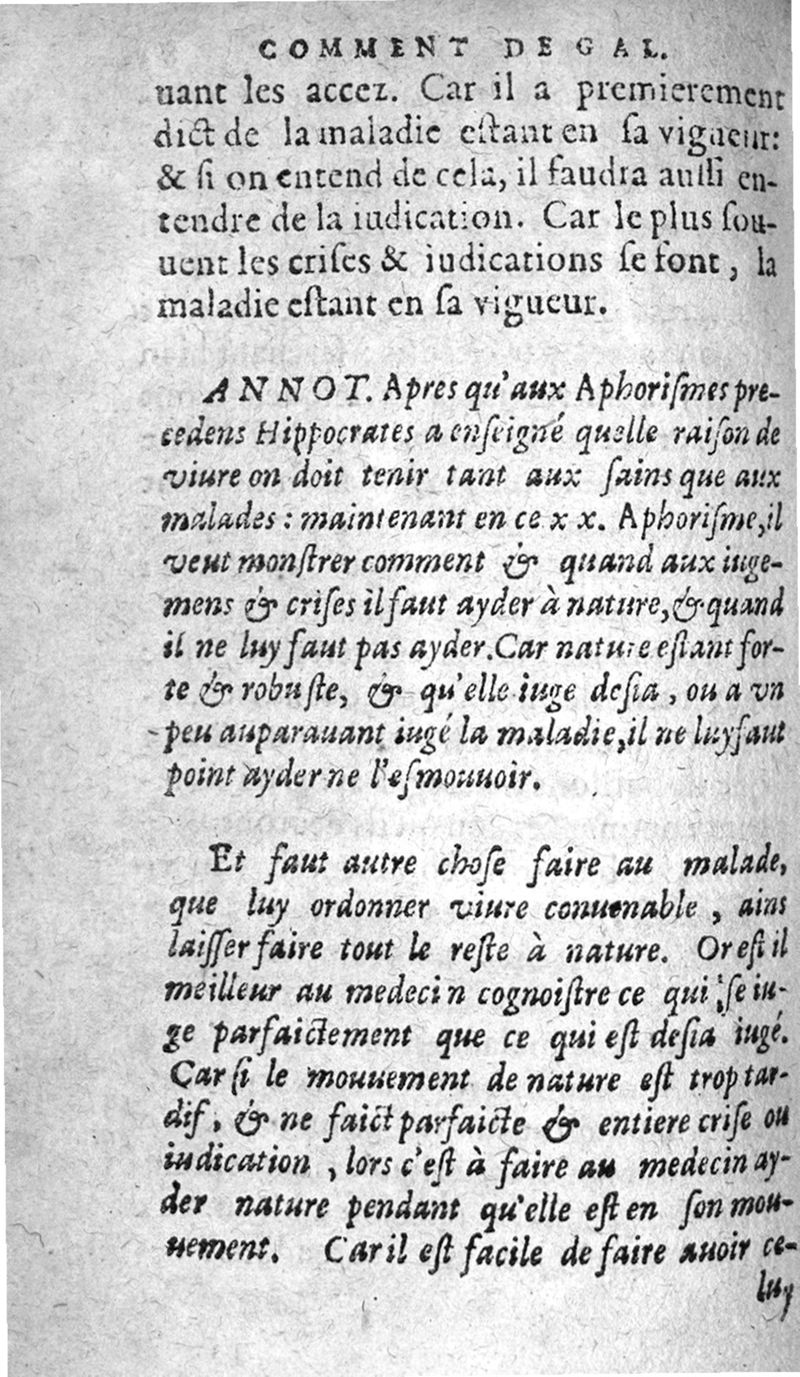 COMMENT DE GAL.
uant les accez. Car il a premierement
dict de la maladie eſtant en ſa vigueur:
& ſi on entend de cela, il faudra auſſi en-
tendre de la iudication. Car le plus ſou-
uent les criſes & iudications ſe font, la
maladie eſtant en ſa vigueur.
ANNOT. Apres qu'aux Aphoriſmes pre-
cedens Hippocrates a enſeigné quelle raiſon de
viure on doit tenir tant aux ſains que aux
malades: maintenant en ce xx. Aphoriſme, il
veut monſtrer comment & quand aux iuge-
mens & criſes il faut ayder à nature, & quand
il ne luy faut pas ayder. Car nature eſtant for-
te & robuſte, & qu'elle iuge deſia, ou a vn
peu auparauant iugé la maladie, il ne luy faut
point ayder ne l'eſmouuoir.
Et faut autre choſe faire au malade,
que luy ordonner viure conuenable, ains
laiſſer faire tout le reſte à nature. Or eſt il
meilleur au medecin cognoiſtre ce qui ſe iu-
ge parfaictement que ce qui eſt deſia iugé.
Car ſi le mouuement de nature eſt trop tar-
dif, & ne faict parfaicte & entiere criſe ou
iudication, lors c'eſt à faire au medecin ay-
der nature pendant qu'elle eſt en ſon mou-
uement. Car il eſt facile de faire auoir ce-
luy